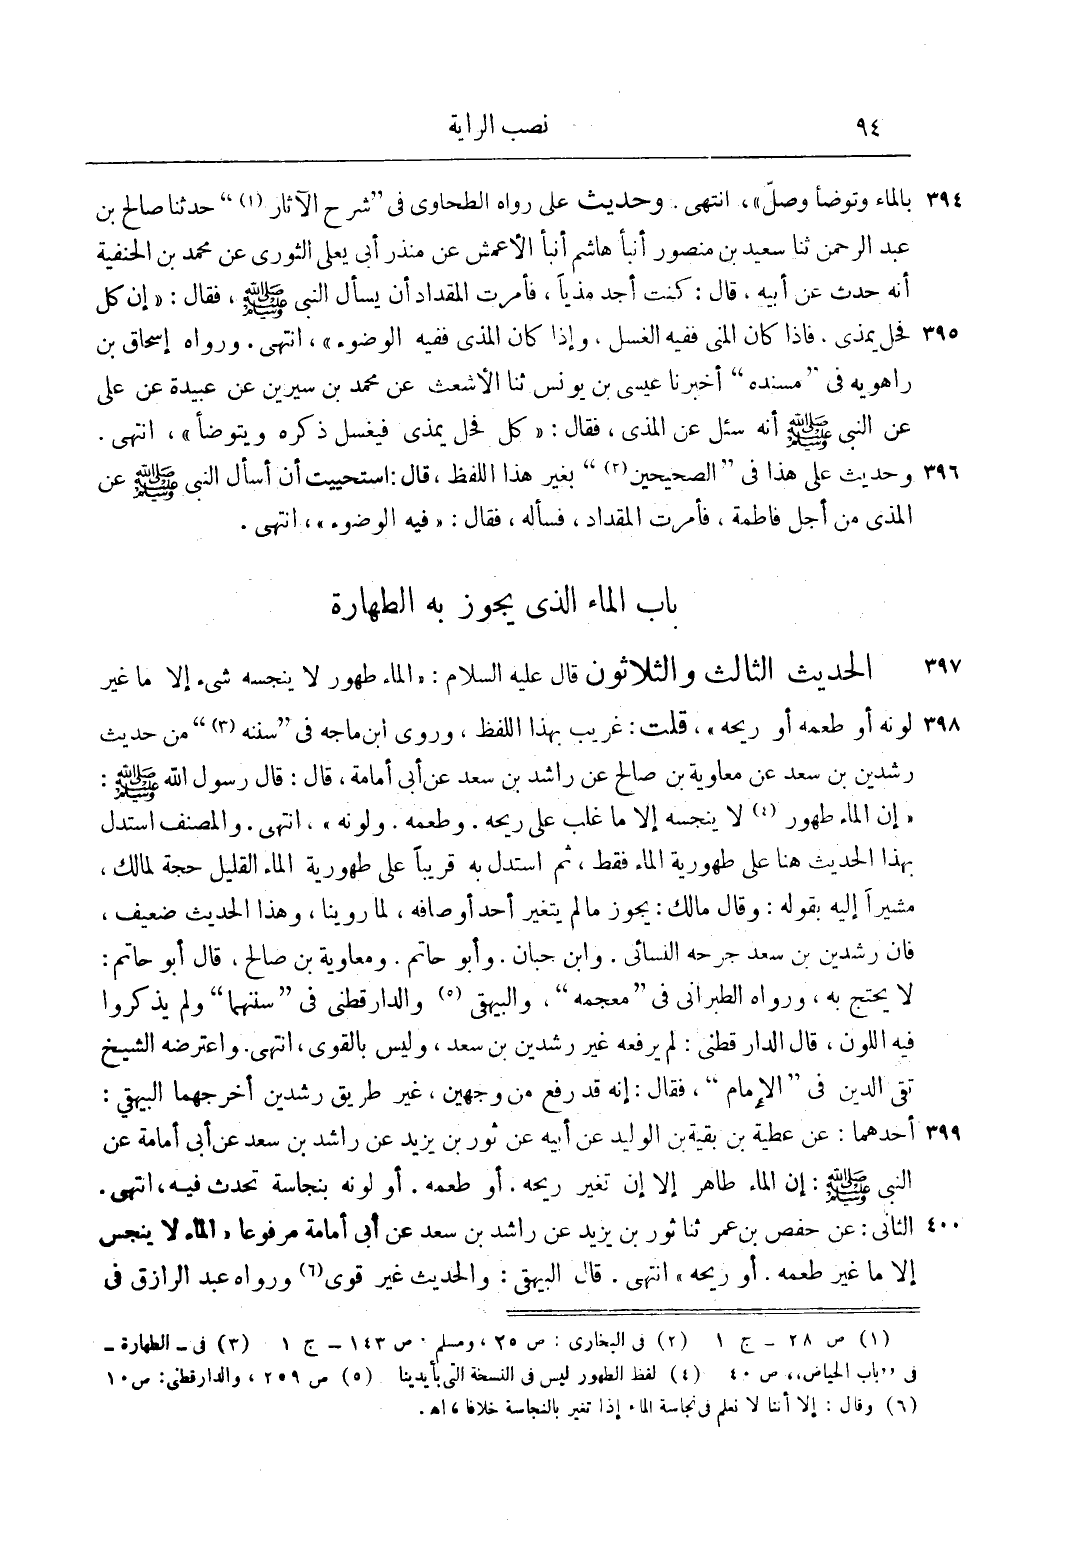 ٩٤ نصب الراية
٣٩٤ بالماء وتوضأ وصلّ»، انتهى. وحديث على رواه الطحاوى فى "شرح الآثار (١)" حدثنا صالح بن
عبد الرحمن ثنا سعيد بن منصور أنبأ هاشم أنبأ الأعمش عن منذر أبى يعلى الثورى عن محمد بن الحنفية
أنه حدث عن أبيه، قال: كنت أجد مذياً، فأمرت المقداد أن يسأل النبى ﷺ، فقال: «إن كل
٣٩٥ فحل يمذى. فاذا كان المنى ففيه الغسل، وإذا كان المذى ففيه الوضوء»، انتهى. ورواه إسحاق بن
راهويه فى "مسنده" أخبرنا عيسى بن يونس ثنا الأشعث عن محمد بن سيرين عن عبيدة عن على
عن النبى ﷺ أنه سئل عن المذى، فقال: «كل فحل يمذى فيغسل ذكره ويتوضأ»، انتهى.
٣٩٦ وحديث على هذا فى "الصحيحين (٢)" بغير هذا اللفظ، قال: استحييت أن أسأل النبى ﷺ عن
المذى من أجل فاطمة، فأمرت المقداد، فسأله، فقال: «فيه الوضوء»، انتهى.
باب الماء الذى يجوز به الطهارة
٣٩٧ الحديث الثالث والثلاثون قال عليه السلام: «الماء طهور لا ينجسه شىء إلا ما غير
٣٩٨ لونه أو طعمه أو ريحه»، قلت: غريب بهذا اللفظ، وروى ابن ماجه فى "سننه (٣)" من حديث
رشدين بن سعد عن معاوية بن صالح عن راشد بن سعد عن أبى أمامة، قال: قال رسول الله ﷺ:
«إن الماء طهور (٤) لا ينجسه إلا ما غلب على ريحه. وطعمه. ولونه»، انتهى. والمصنف استدل
بهذا الحديث هنا على طهورية الماء فقط، ثم استدل به قريباً على طهورية الماء القليل حجة لمالك،
مشيراً إليه بقوله: وقال مالك: يجوز مالم يتغير أحد أوصافه، لما روينا، وهذا الحديث ضعيف،
فان رشدين بن سعد جرحه النسائى. وابن حبان. وأبو حاتم. ومعاوية بن صالح، قال أبو حاتم:
لا يحتج به، ورواه الطبرانى فى "معجمه"، والبيهقى (٥) والدارقطنى فى "سننهما" ولم يذكروا
فيه اللون، قال الدارقطنى: لم يرفعه غير رشدين بن سعد، وليس بالقوى، انتهى. واعترضه الشيخ
تقى الدين فى "الإمام"، فقال: إنه قد رفع من وجهين، غير طريق رشدين أخرجهما البيهقى:
٣٩٩ أحدهما: عن عطية بن بقية بن الوليد عن أبيه عن ثور بن يزيد عن راشد بن سعد عن أبى أمامة عن
النبى ﷺ: إن الماء طاهر إلا إن تغير ريحه. أو طعمه. أو لونه بنجاسة تحدث فيه، انتهى.
٤٠٠ الثانى: عن حفص بن عمر ثنا ثور بن يزيد عن راشد بن سعد عن أبى أمامة مرفوعا «الماء لا ينجس
إلا ما غير طعمه. أو ريحه» انتهى. قال البيهقى: والحديث غير قوى (٦) ورواه عبد الرازق فى
(١) ص ٢٨ ـ ج ١ (٢) فى البخارى: ص ٢٥، ومسلم. ص ١٤٣ ـ ج ١ (٣) فى ـ الطهارة ـ
فى "باب الحياض" ص ٤٠ (٤) لفظ الطهور ليس فى النسخة التى بأيدينا (٥) ص ٢٥٩، والدارقطنى: ص ١٠
(٦) وقال: إلا أننا لا نعلم فى نجاسة الماء إذا تغير بالنجاسة خلافا، اهـ.